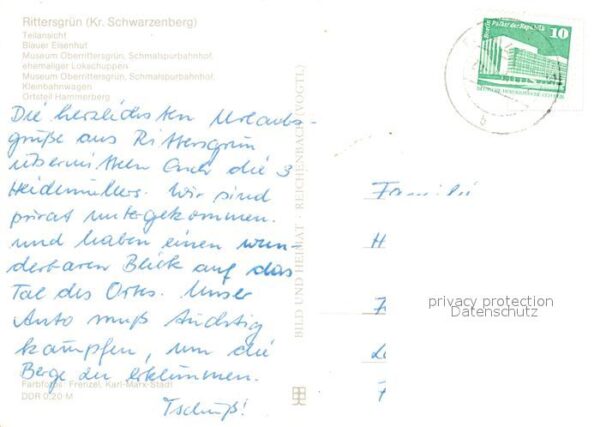 Rittersgrün (Kr. Schwarzenberg)
Teilansicht
Blauer Eisenhut
Museum Oberrittersgrün, Schmalspurbahnhof,
ehemaliger Lokschuppen
Museum Oberrittersgrün, Schmalspurbahnhof,
Kleinbahnwagen
Ortsteil Hammerberg
Die herzlichsten Urlaubs-
grüße aus Rittersgrün
übermitteln Euch die 3
Heidemüllers. Wir sind
privat untergekommen.
und haben einen wun-
derbaren Blick auf das
Tal des Ortes. Unser
Auto muß tüchtig
kämpfen, um die
Berge zu erklimmen.
Tschüß!
Farbfotos: Frenzel, Karl-Marx-Stadt
DDR 0,20 M
BILD UND HEIMAT · REICHENBACH (VOGTL)
Berlin, Palast der Republik
10
Familie
H
L
privacy protection
Datenschutz